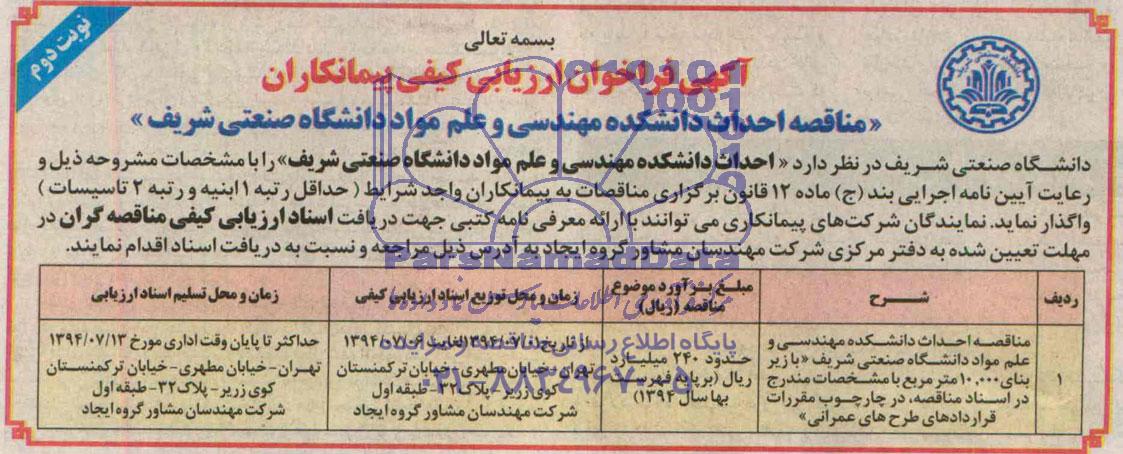 نوبت دوم
بسمه تعالی
آگهی فراخوان ارزیابی کیفی پیمانکاران
«مناقصه احداث دانشکده مهندسی و علم مواد دانشگاه صنعتی شریف»
دانشگاه صنعتی شریف در نظر دارد «احداث دانشکده مهندسی و علم مواد دانشگاه صنعتی شریف» را با مشخصات مشروحه ذیل و
رعایت آیین نامه اجرایی بند (ج) ماده ۱۲ قانون برگزاری مناقصات به پیمانکاران واجد شرایط (حداقل رتبه ۱ ابنیه و رتبه ۲ تاسیسات)
واگذار نماید. نمایندگان شرکت‌های پیمانکاری می توانند با ارائه معرفی نامه کتبی جهت دریافت اسناد ارزیابی کیفی مناقصه گران در
مهلت تعیین شده به دفتر مرکزی شرکت مهندسان مشاور گروه ایجاد به آدرس ذیل مراجعه و نسبت به دریافت اسناد اقدام نمایند.
ردیف
شرح
مبلغ برآورد موضوع
مناقصه (ریال)
زمان و محل توزیع اسناد ارزیابی کیفی
زمان و محل تسلیم اسناد ارزیابی
۱
مناقصه احداث دانشکده مهندسی و
علم مواد دانشگاه صنعتی شریف «با زیر
بنای ۱۰,۰۰۰ متر مربع با مشخصات مندرج
در اسناد مناقصه، در چارچوب مقررات
قراردادهای طرح های عمرانی»
حدود ۲۴۰ میلیارد
ریال (بر پایه فهرست
بها سال ۱۳۹۴)
از تاریخ ۱۳۹۴/۰۷/۰۱ لغایت ۱۳۹۴/۰۷/۰۶
تهران - خیابان مطهری - خیابان ترکمنستان
کوی زریر - پلاک ۳۲ - طبقه اول
شرکت مهندسان مشاور گروه ایجاد
حداکثر تا پایان وقت اداری مورخ ۱۳۹۴/۰۷/۱۳
تهران - خیابان مطهری - خیابان ترکمنستان
کوی زریر - پلاک ۳۲ - طبقه اول
شرکت مهندسان مشاور گروه ایجاد
ParsNamadData
پایگاه اطلاع رسانی مناقصه و مزایده
۰۲۱-۸۸۳۴۹۶۷۰-۵